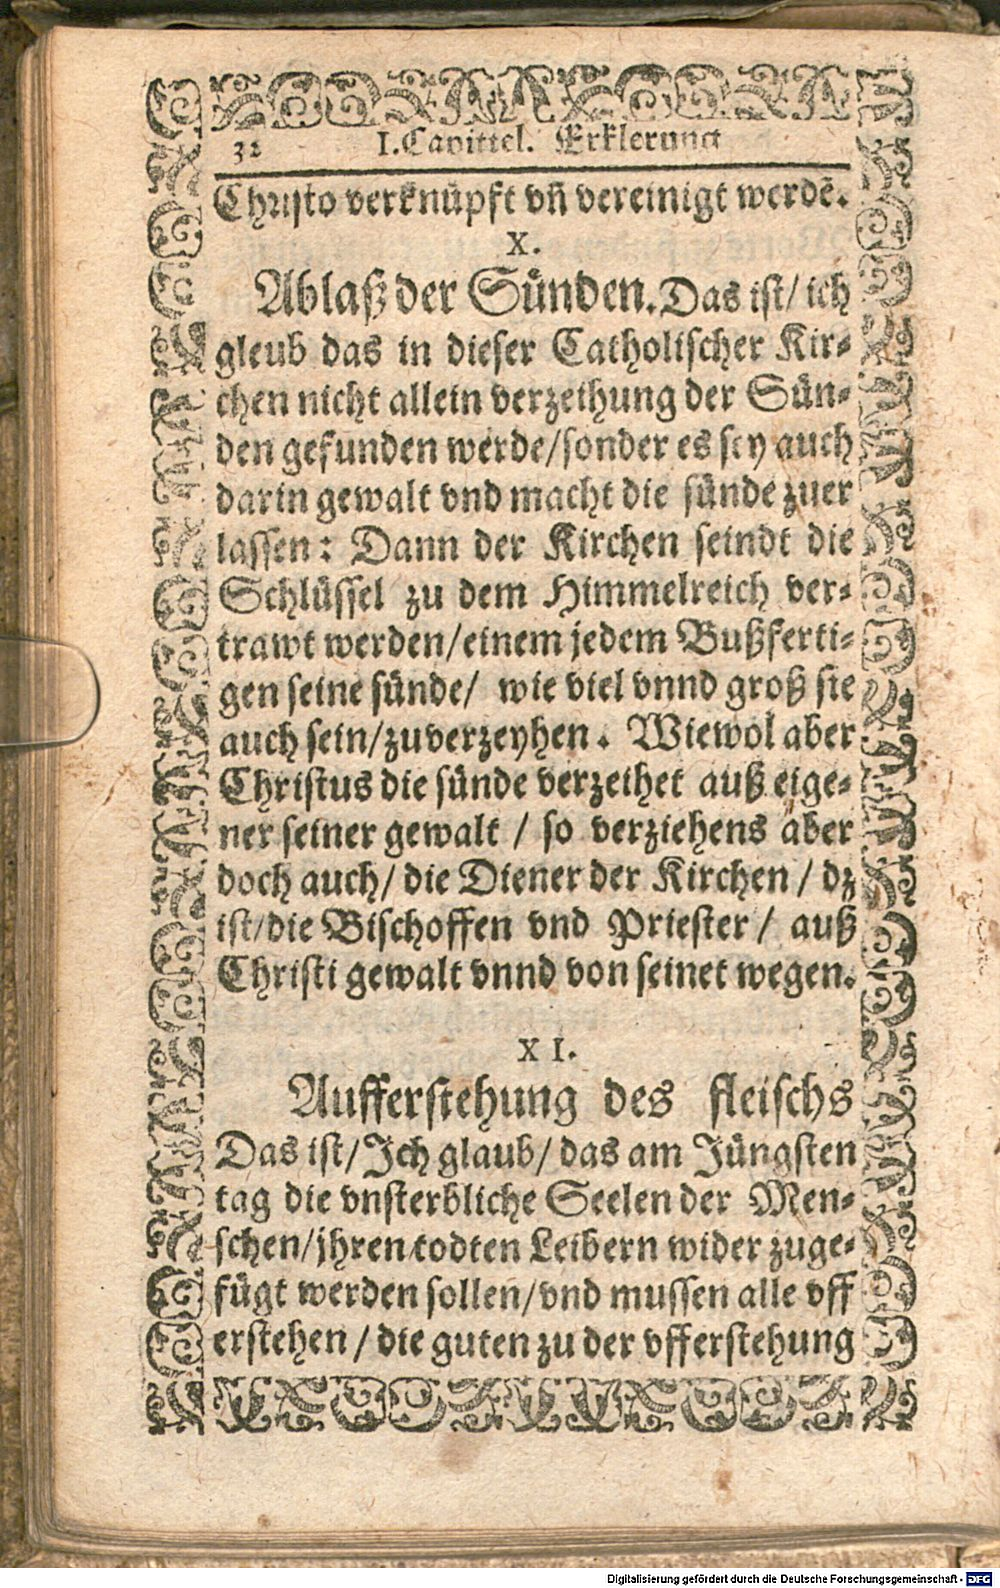 32 I. Capittel. Erklerung
Christo verknüpft vñ vereinigt werdẽ.
X.
Ablaß der Sünden. Das ist/ ich
gleub das in dieser Catholischer Kir-
chen nicht allein verzeihung der Sün-
den gefunden werde/sonder es sey auch
darin gewalt vnd macht die sünde zuer
lassen: Dann der Kirchen seindt die
Schlüssel zu dem Himmelreich ver-
trawt werden/einem jedem Bußferti-
gen seine sünde/ wie viel vnnd groß sie
auch sein/zuverzeyhen. Wiewol aber
Christus die sünde verzeihet auß eige-
ner seiner gewalt / so verziehens aber
doch auch/ die Diener der Kirchen / dz
ist/die Bischoffen vnd Priester / auß
Christi gewalt vnnd von seinet wegen.
XI.
Aufferstehung des fleischs
Das ist/Ich glaub/ das am Jüngsten
tag die vnsterbliche Seelen der Men-
schen/jhren todten Leibern wider zuge-
fügt werden sollen/vnd mussen alle vff
erstehen / die guten zu der vfferstehung
Digitalisierung gefördert durch die Deutsche Forschungsgemeinschaft - DFG